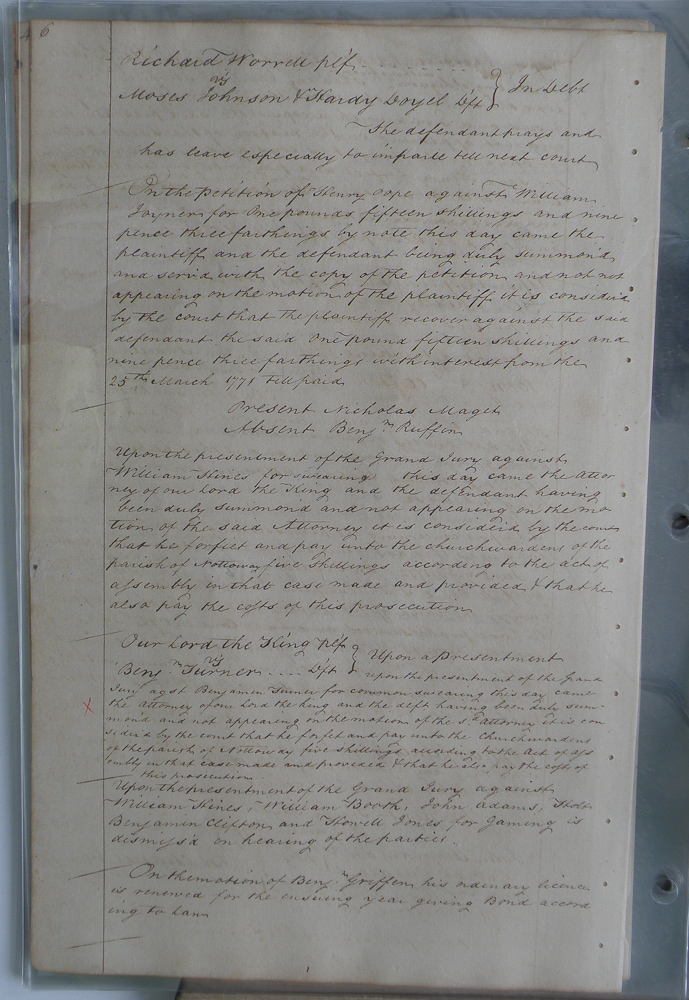 6
Richard Worrell plf
vs
Moses Johnson & Hardy Doyel Dft } In Debt
The defendant prays and
has leave especially to imparle till next court
On the Petition of Henry Pope against William
Joyner for One pounds fifteen shillings and nine
pence three farthings by note this day came the
plaintiff and the defendant being duly summond
and servd with the copy of the petition and not
appearing on the motion of the plaintiff it is considerd
by the court that the plaintiff recover against the said
defendant the said One pound fifteen shillings and
nine pence three farthings with interest from the
25th March 1771 till paid
Present Nicholas Maget
Absent Benjn Ruffin
Upon the presentment of the Grand Jury against
William Hines for swearing this day came the Attor
ney of our Lord the King and the defendant having
been duly summond and not appearing on the mo
tion of the said Attorney it is considerd by the court
that he forfiet and pay unto the churchwardens of the
parish of Nottoway five shillings according to the act of
assembly in that case made and provided & that he
also pay the costs of this prosecution
Our Lord the King plf
vs
Benjn Turner .... Dft } Upon a Presentment
upon the presentment of the Grand
Jury agst Benjamin Turner for common swearing this day came
the attorney of our Lord the King and the deft having been duly sum-
mond and not appearing on the motion of the sd attorney it is con
siderd by the court that he forfet and pay unto the Churchwardens
of the parish of Nottoway five shillings according to the Act of ass
embly in that case made and provided & that he also pay the costs of
this prosecution.
Upon the presentment of the Grand Jury against
William Hines, William Booth, John Adams,
Benjamin Clifton and Howell Jones for Gaming is
dismiss'd on hearing of the parties.
On the motion of Benjn Griffen his ordinary licence
is renewed for the ensuing year giving Bond accord
ing to Law